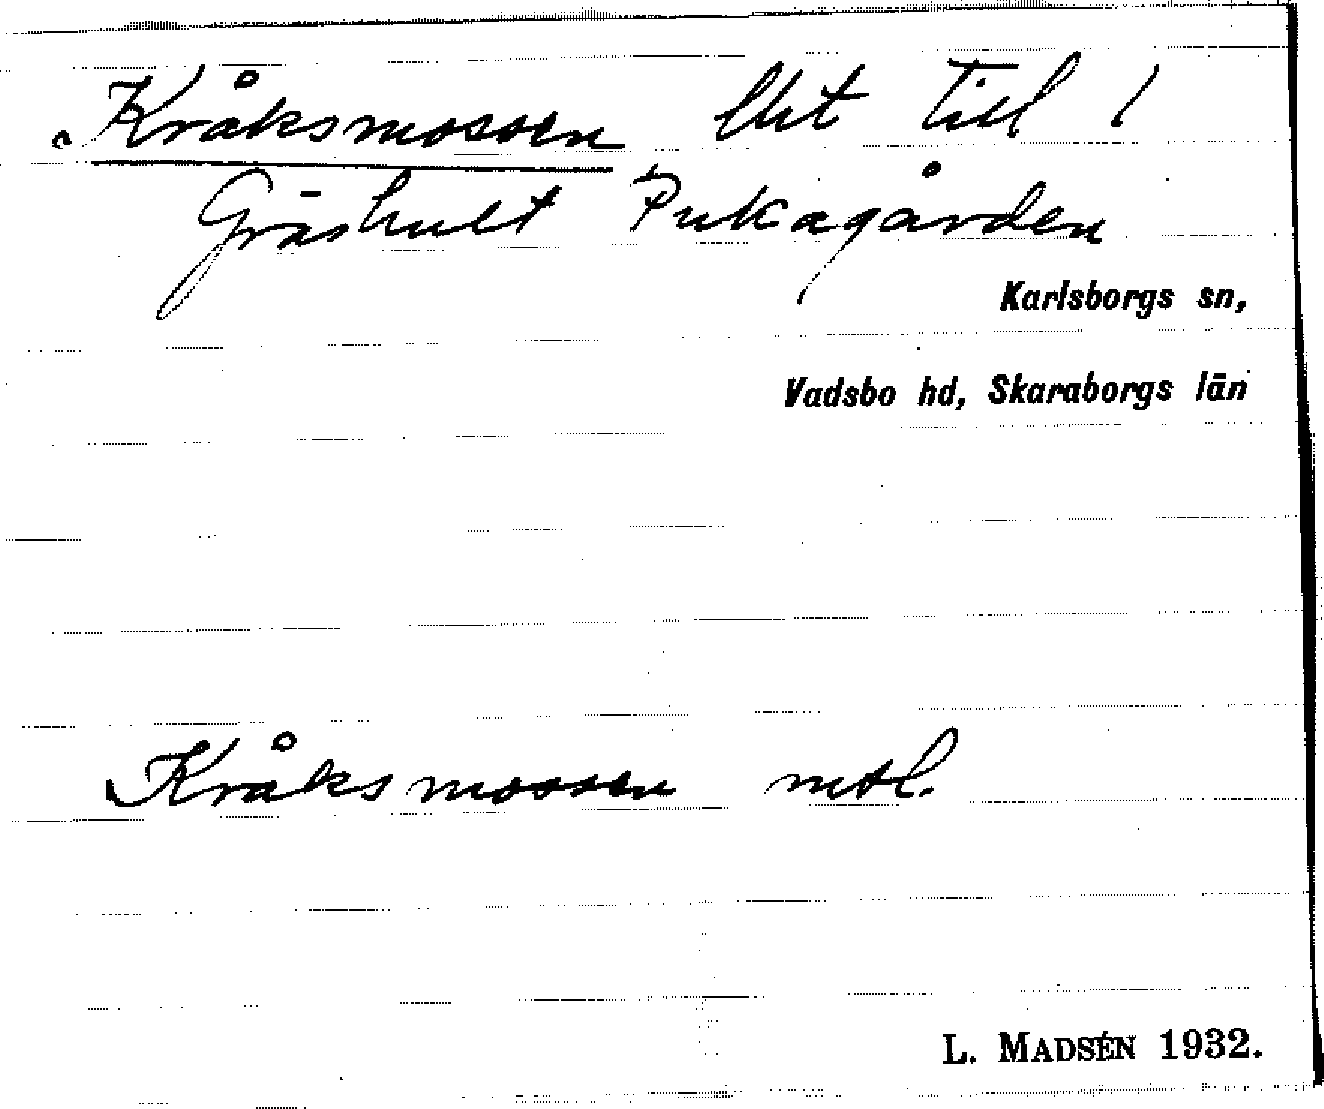 Kråksmossen lht till 1
Gräshult Pukagården
Karlsborgs sn,
Vadsbo hd, Skaraborgs län
Kråksmossen mtl.
L. MADSÉN 1932.